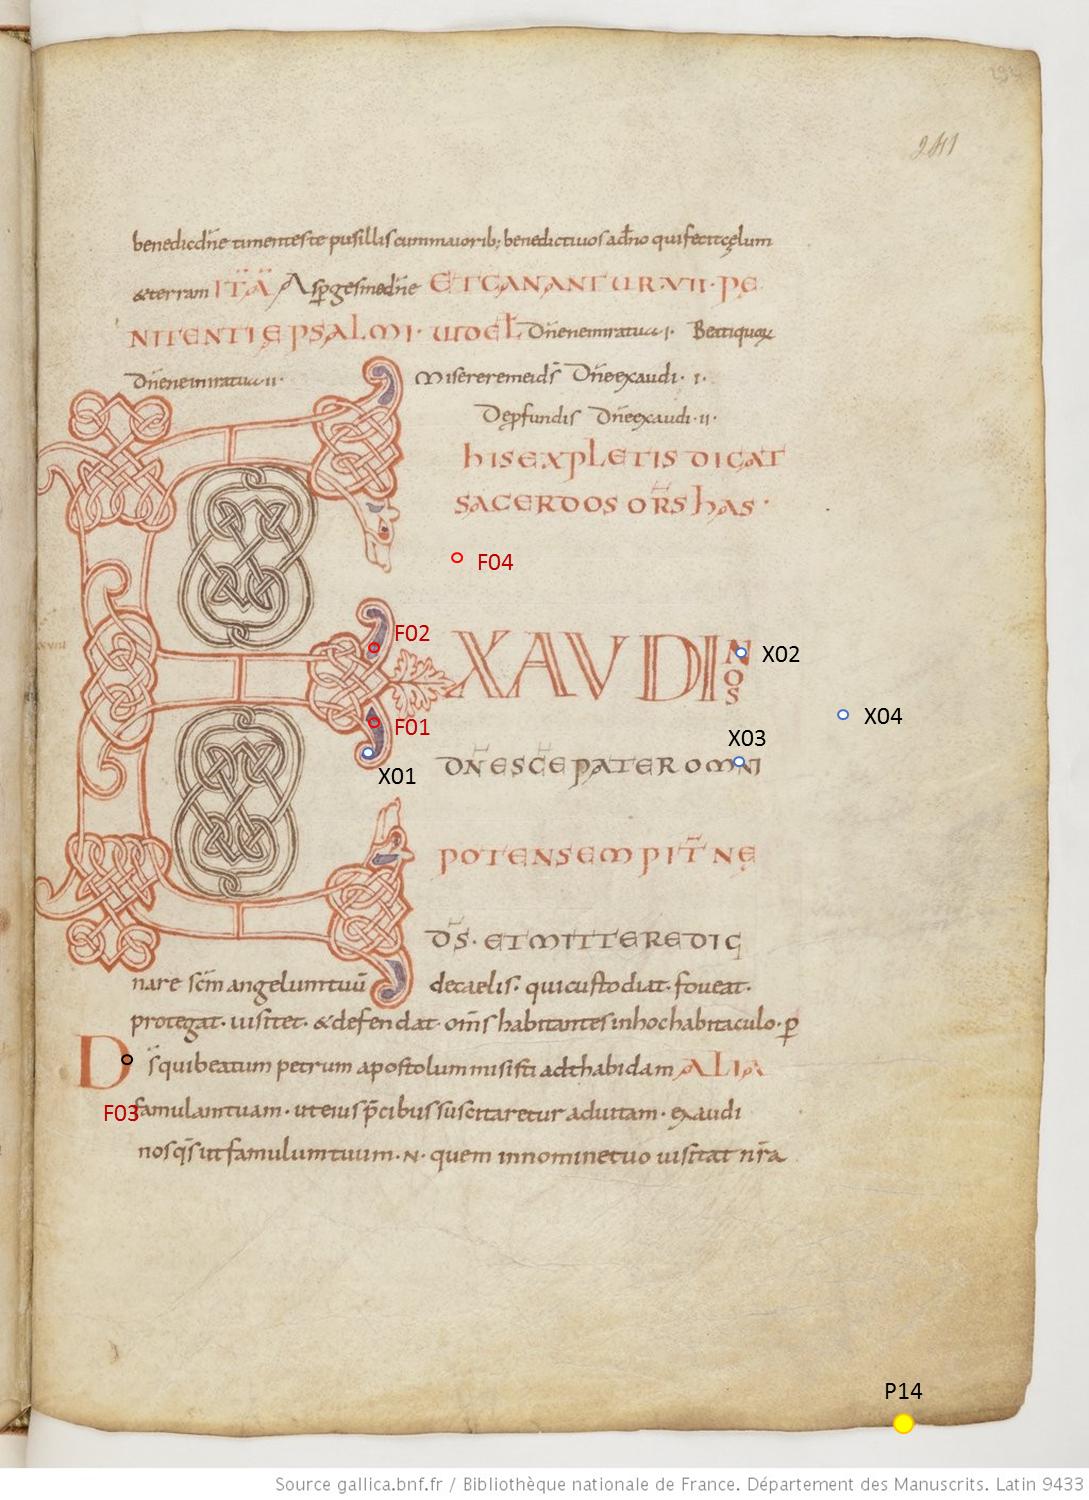 241
benedicdn̄e timentes te pusillis cum maiorib; benedictiuos adn̄o qui fecit cęlum
& terram ITA Aspgesmedn̄e ET CANANTUR VII. PE
NITENTIE PSALMI. UIDEL Dn̄eneiniratua I. Beatiquoꝝ
Dn̄eneiniratua II. Misereremeids̄ Dn̄eexaudi. I.
Depfundis Dn̄eexaudi. II.
HIS EXPLETIS DICAT
SACERDOS OR̄S HAS
F04
F02
EXAUDI NOS
X02
F01
X04
X03
X01
DN̄E SC̄E PATER OMNI
POTENS EMPIT̄NE
DS̄. ET MITTERE DIG
nare scm̄ angelum tuū de caelis. qui custodiat. foueat.
protegat. uisitet. & defendat. om̄s habitantes in hoc habitaculo. p
Ds̄ qui beatum petrum apostolum misisti adthabidam ALIA
F03
famulam tuam. ut eius p̄cibus suscitaretur ad uitam. exaudi
nos qs̄ ut famulum tuum. N. quem in nomine tuo uisitat nr̄a
P14
Source gallica.bnf.fr / Bibliothèque nationale de France. Département des Manuscrits. Latin 9433